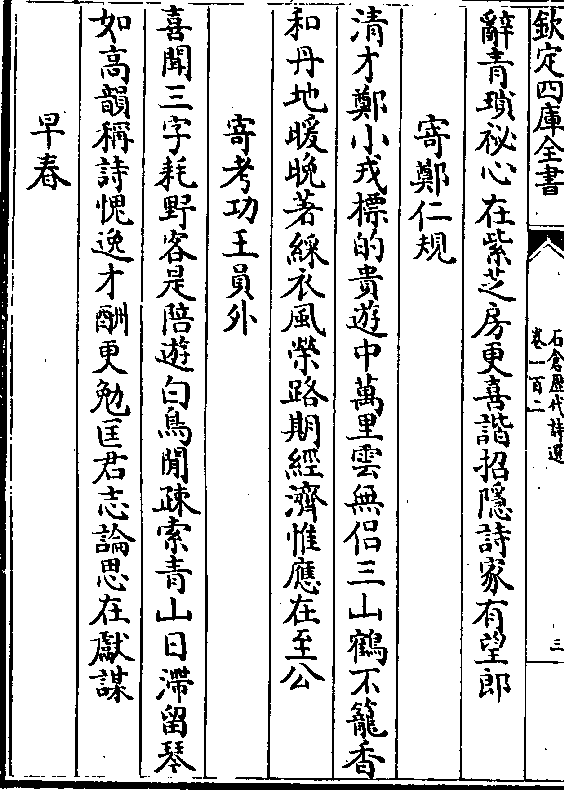 欽定四庫全書
石倉歷代詩選
卷一百二
三
辭青瑣祕心在紫芝房更喜諧招隱詩家有望郎
寄鄭仁規
清才鄭小戎標的貴遊中萬里雲無侣三山鶴不籠香
和丹地暖晚著綵衣風榮路期經濟惟應在至公
寄考功王員外
喜聞三字耗野客是陪遊白鳥閒疎索青山日滯留琴
如高韻稱詩愧逸才酬更勉匡君志論思在獻謀
早春